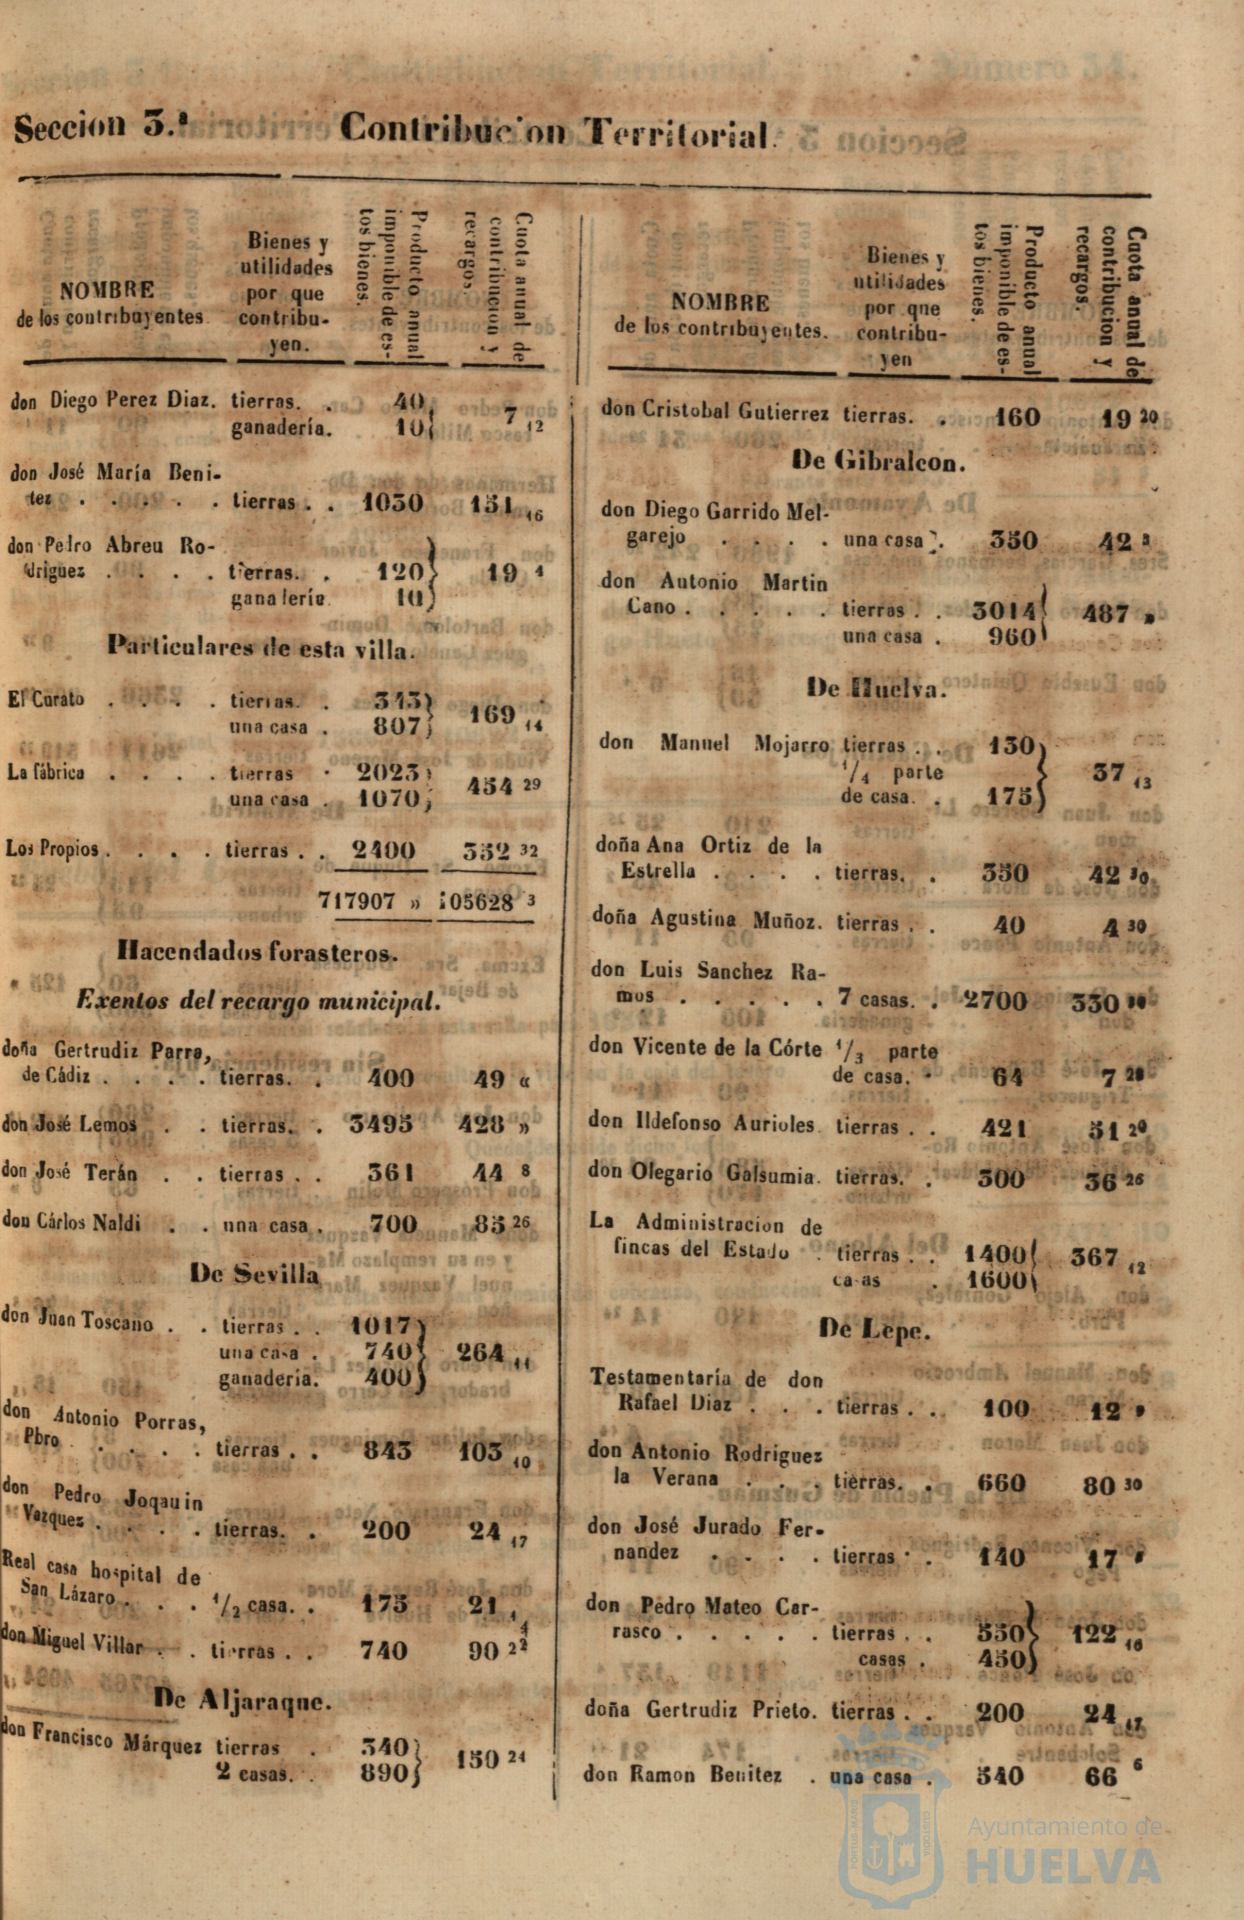 Seccion 3.ª Contribucion Territorial.
NOMBRE
de los contribuyentes
Bienes y
utilidades
por que
contribu-
yen.
Producto anual
imponible de es-
tos bienes.
Cuota anual de
contribucion y
recargos
don Diego Perez Diaz. tierras. . 40
ganadería. 10 7 12
don José María Beni-
tez . . . . . tierras . . 1030 131 16
don Pedro Abreu Ro-
driguez . . . . tierras. . 120 19 4
ganadería 10
Particulares de esta villa.
El Curato . . . . tierras. . 343
una casa . 807 169 14
La fábrica . . . . tierras . 2023
una casa . 1070 454 29
Los Propios . . . . tierras . . 2400 352 32
717907 » 105628 3
Hacendados forasteros.
Exentos del recargo municipal.
doña Gertrudiz Parra,
de Cádiz . . . . tierras. . 400 49 «
don José Lemos . . tierras. . 3495 428 »
don José Terán . . tierras . . 361 44 8
don Cárlos Naldi . . una casa . 700 85 26
De Sevilla
don Juan Toscano . . tierras . . 1017
una casa . 740 264 11
ganadería. 400
don Antonio Porras,
Pbro . . . . . tierras . . 843 103 10
don Pedro Joqauin
Vazquez . . . . tierras. . 200 24 17
Real casa hospital de
San Lázaro . . . 1/2 casa. . 175 21
don Miguel Villar . . tierras . . 740 90 22
De Aljaraque.
don Francisco Márquez tierras . 340
2 casas. . 890 150 24
NOMBRE
de los contribuyentes.
Bienes y
utilidades
por que
contribu-
yen
Producto anual
imponible de es-
tos bienes.
Cuota anual de
contribucion y
recargos.
don Cristobal Gutierrez tierras. . 160 19 20
De Gibraleon.
don Diego Garrido Mel-
garejo . . . . una casa . 350 42
don Antonio Martin
Cano . . . . . tierras . . 3014 487 »
una casa . 960
De Huelva.
don Manuel Mojarro tierras . . 130
1/4 parte 37 13
de casa. . 175
doña Ana Ortiz de la
Estrella . . . . tierras. . 350 42 30
doña Agustina Muñoz. tierras . . 40 4 30
don Luis Sanchez Ra-
mos . . . . . 7 casas. . 2700 330
don Vicente de la Córte 1/3 parte
de casa. . 64 7 28
don Ildefonso Aurioles. tierras . . 421 51 20
don Olegario Galsumia. tierras. . 300 36 26
La Administracion de
fincas del Estado . tierras . . 1400 367 12
casas . 1600
De Lepe.
Testamentaría de don
Rafael Diaz . . . tierras . . 100 12 »
don Antonio Rodriguez
la Verana . . . tierras. . 660 80 30
don José Jurado Fer-
nandez . . . . tierras . . 140 17 »
don Pedro Mateo Car-
rasco . . . . . tierras . . 550 122 16
casas . 450
doña Gertrudiz Prieto. tierras . . 200 24 17
don Ramon Benitez . una casa . 540 66 6
Ayuntamiento de
HUELVA